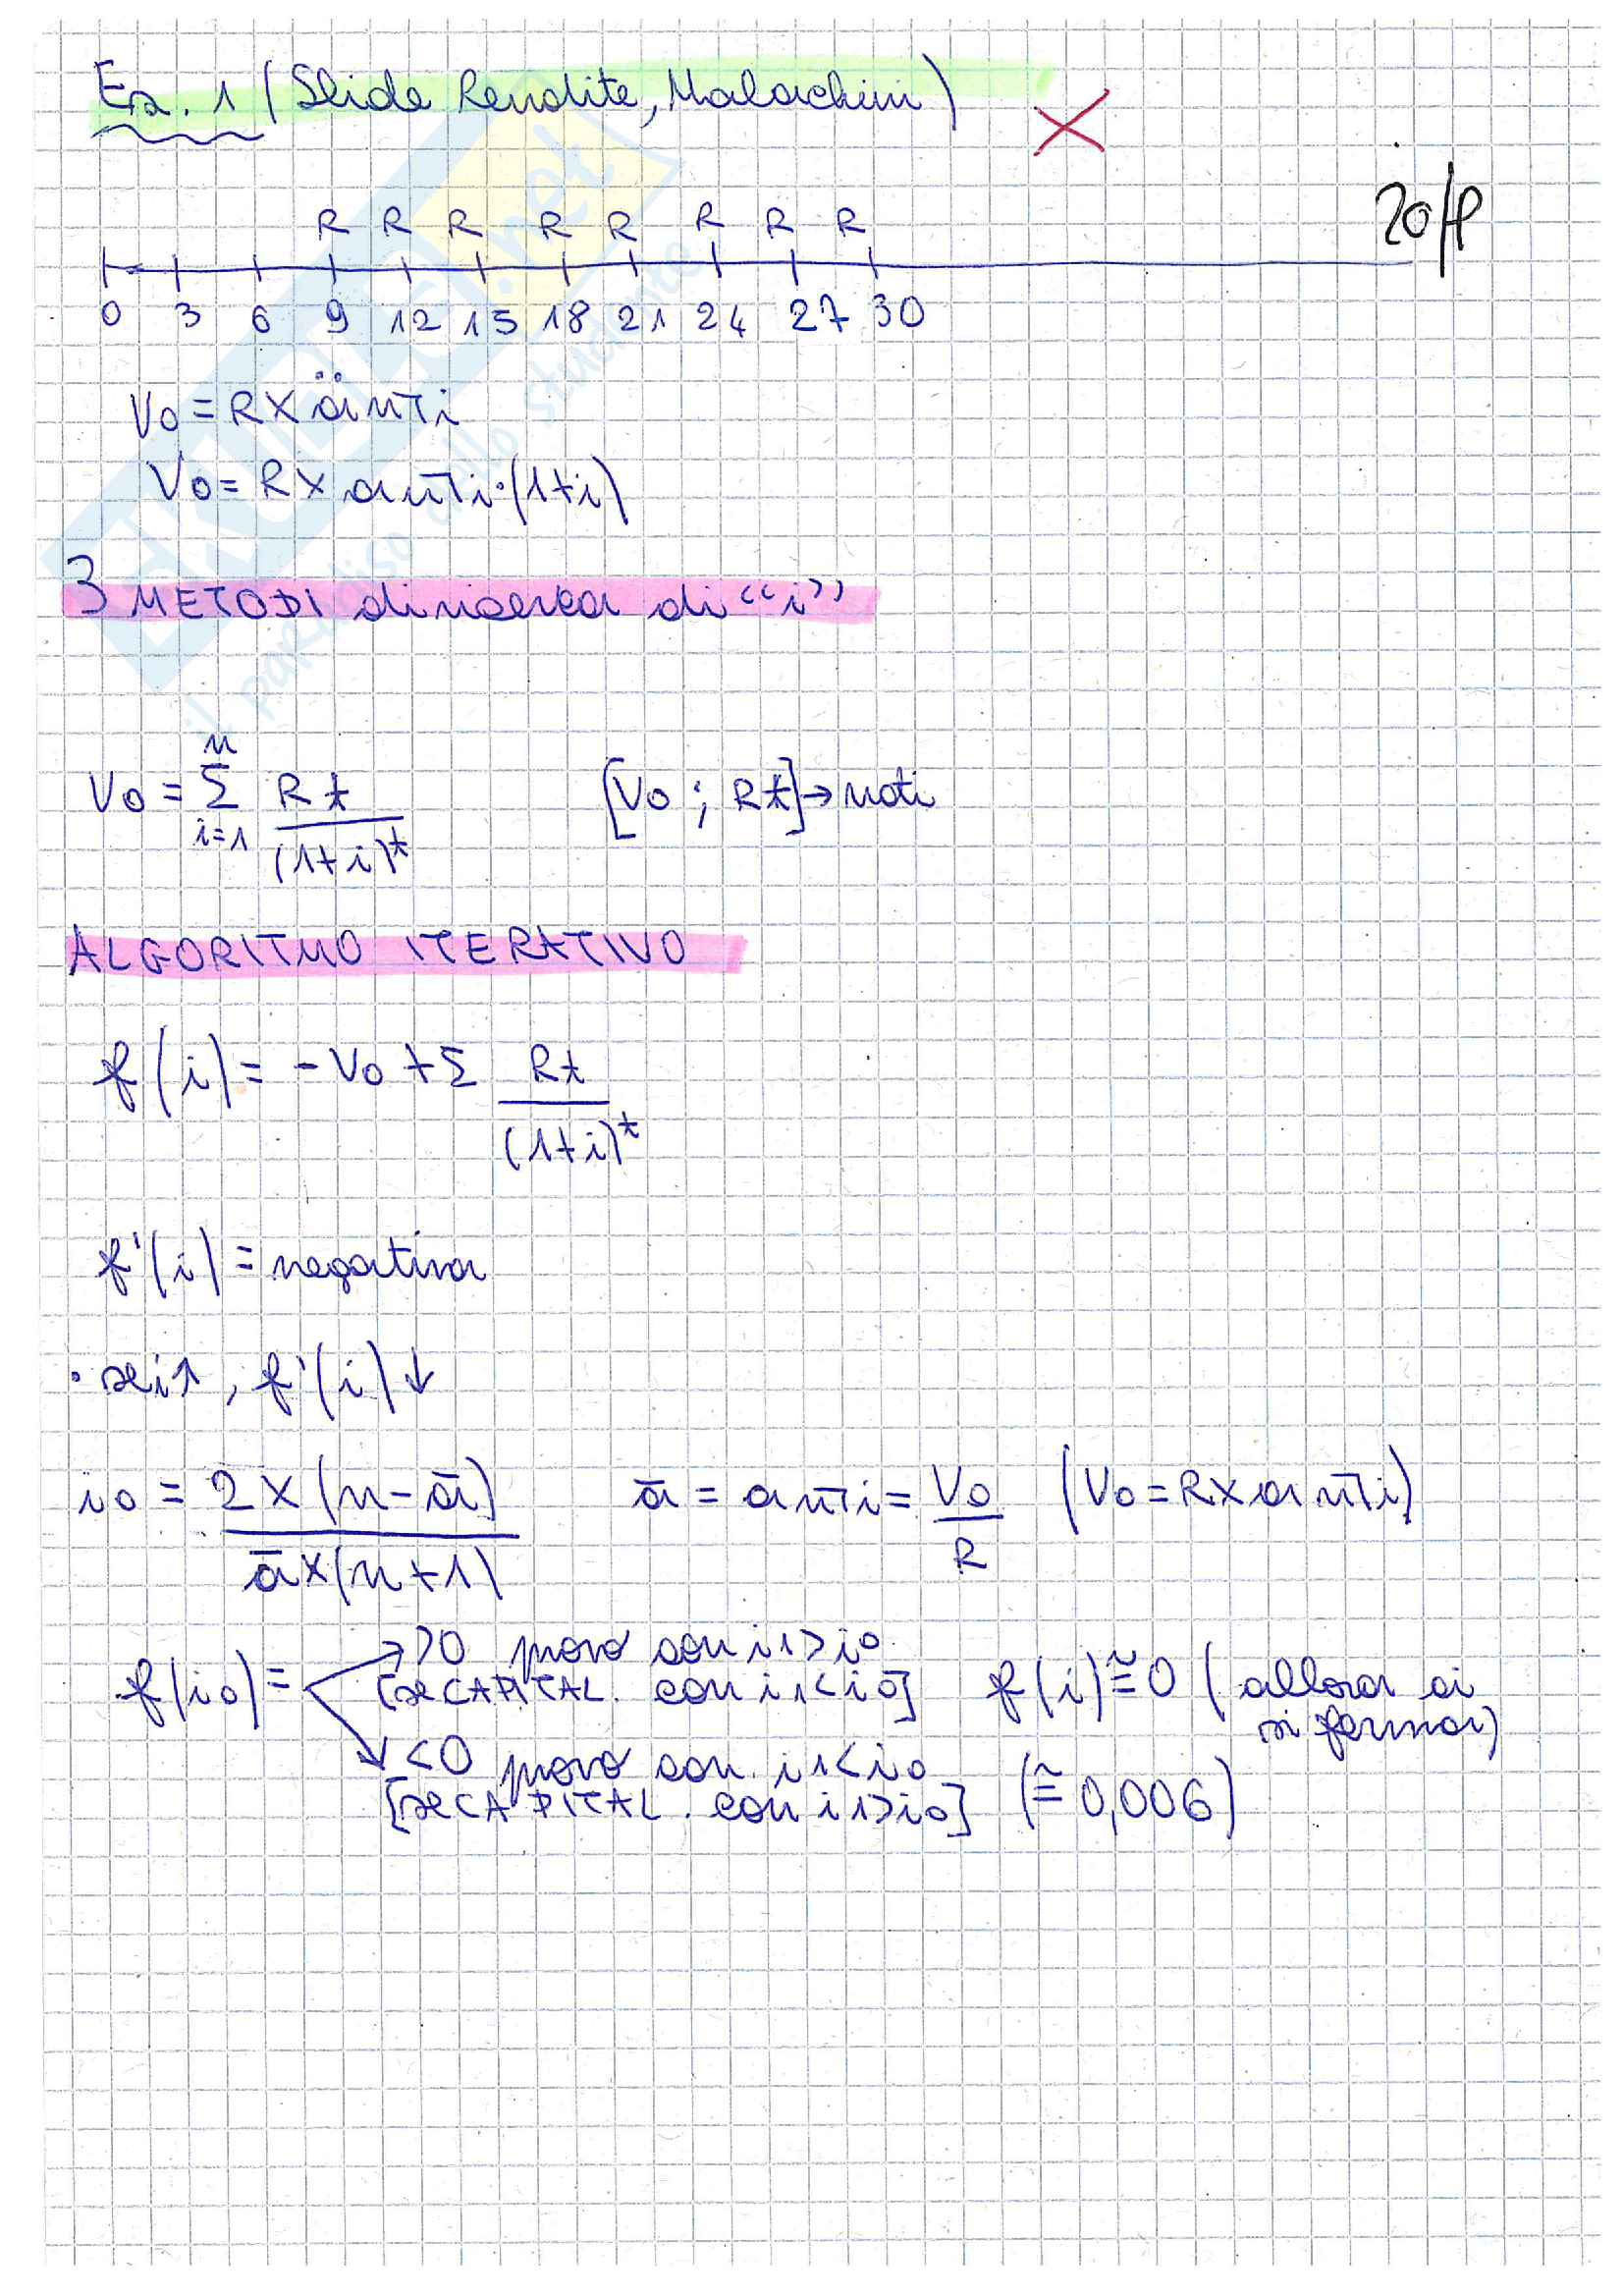 Es. 1 (Slide Rendite, Malachini)
20/P
R R R R R R R R
0 3 6 9 12 15 18 21 24 27 30
V0 = R x än̅i
V0 = R x an̅i · (1+i)
3 METODI di ricerca di "i"
n
V0 = Σ Rt [V0 ; Rt] → noti
i=1 (1+i)^t
ALGORITMO ITERATIVO
f(i) = - V0 + Σ Rt
(1+i)^t
f'(i) = negativa
· se i↑, f'(i)↓
i0 = 2 x (n - ā) ā = an̅i = V0 (V0 = R x an̅i)
ā x (n+1) R
f(i0) = >0 provo con i1>i0
[se CAPITAL. con i1<i0] f(i) ≅ 0 (allora ci
si ferma)
<0 provo con i1<i0
[se CAPITAL. con i1>i0] (≅ 0,006)
il paradiso dello studente